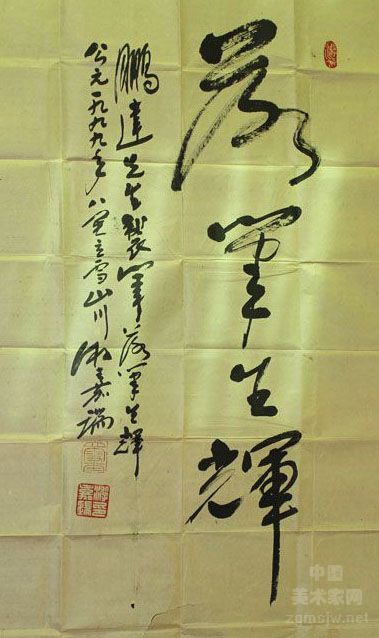 落筆生輝
鵬達先生製筆落筆生輝
公元一九九九年八立雪山川嘉瑞
中国
美术家网
zgmsjw.net